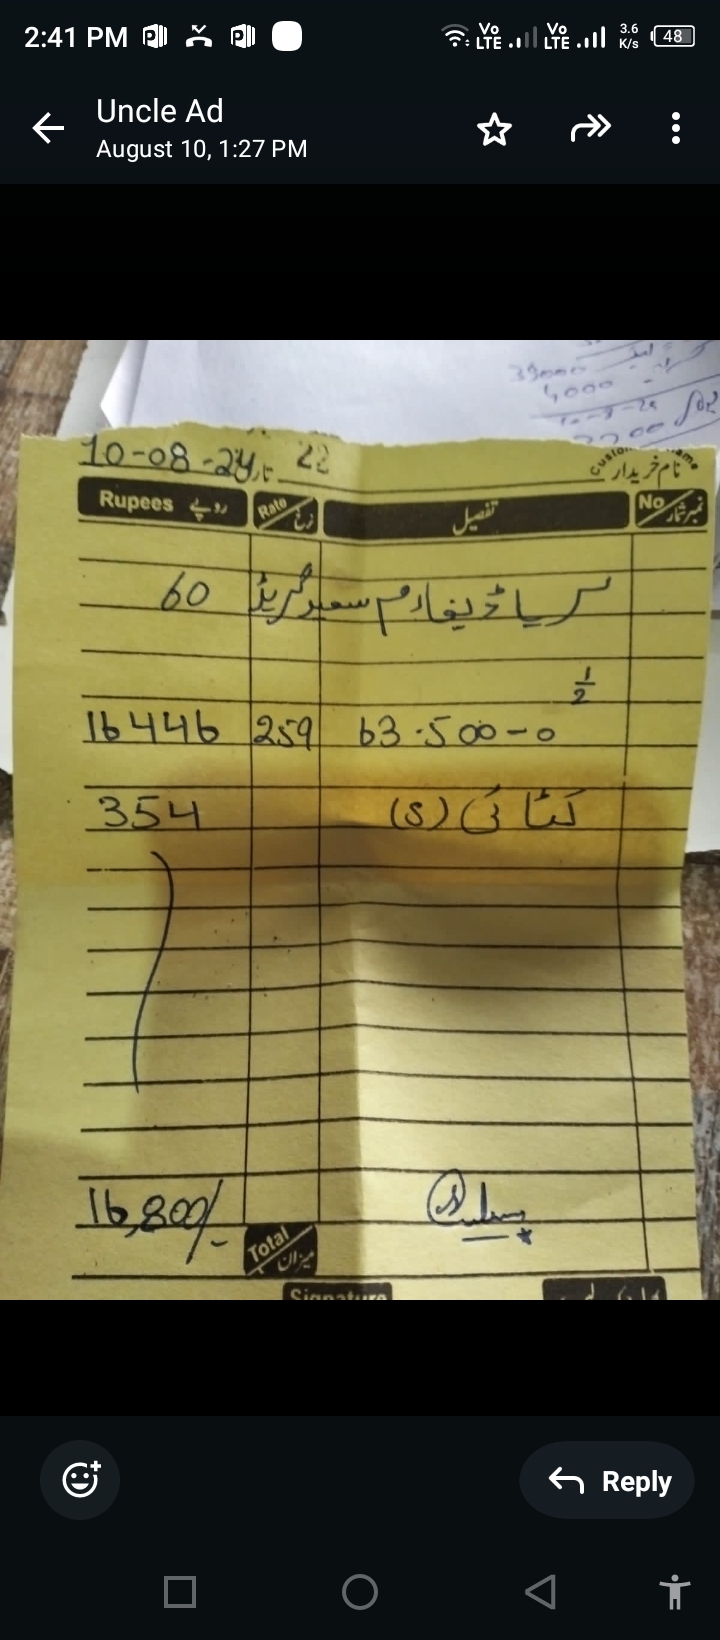 2:41 PM Vo LTE Vo LTE 3.6 K/s 48
Uncle Ad
August 10, 1:27 PM
39000
4000
10-08-24 تاریخ 22 نام خریدار
Rupees روپے Rate نرخ تفصیل No نمبر شمار
60 سریا ڈیفارم گریڈ
1/2
16446 259 63.500-0
354 کٹائی (S)
16,800/-
Total میزان
Signature
Reply